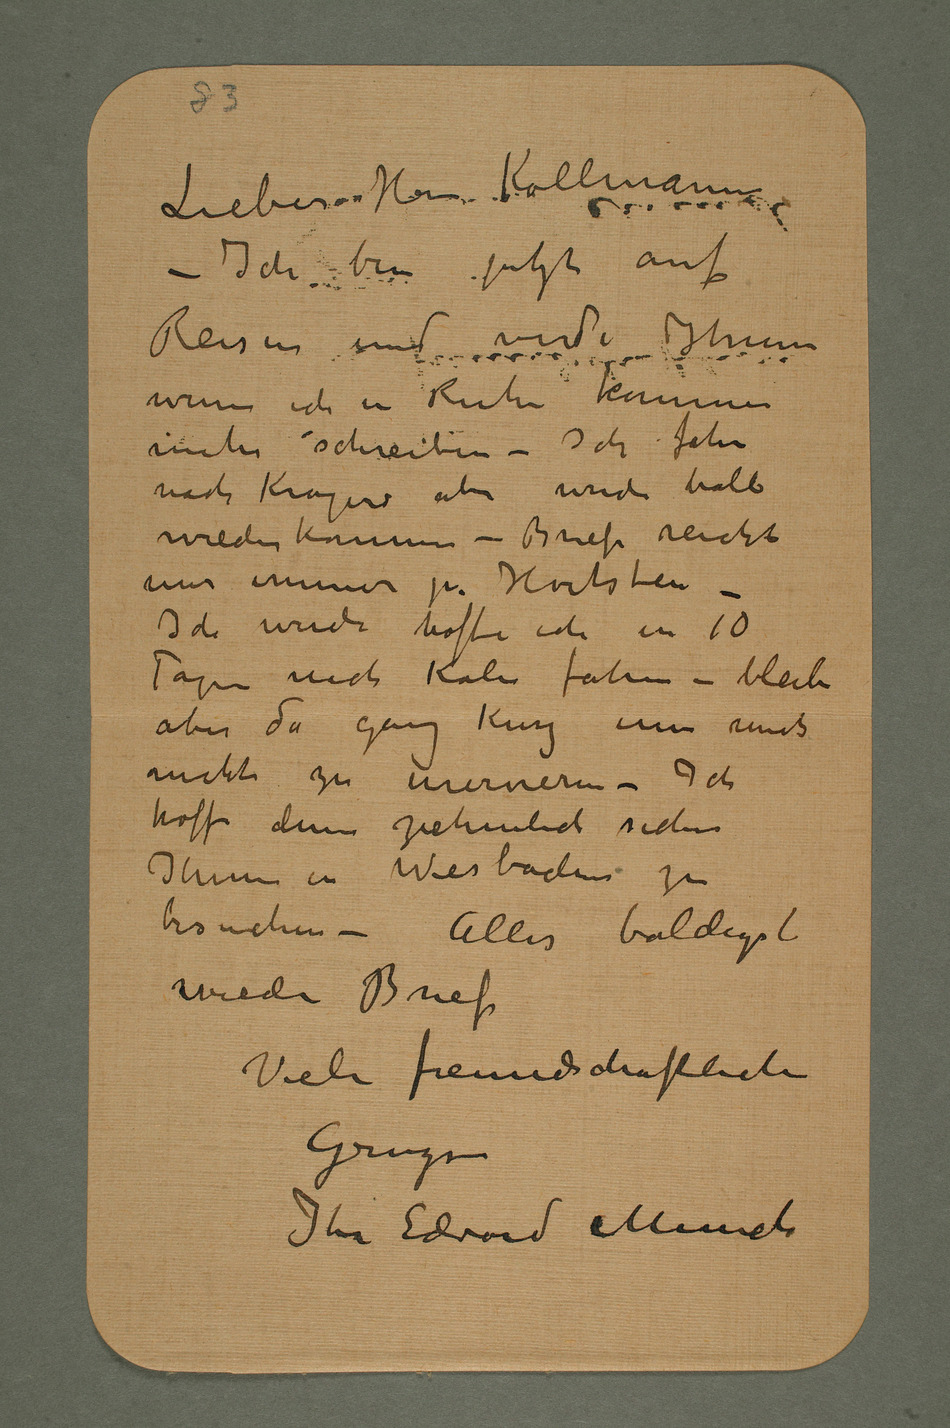 83
Lieber Herr Kollmann
– Ich bin jetzt auf
Reisen und werde Ihnen
wenn ich in Ruhe komme
mehr schreiben – Ich fahre
nach Kragerø aber werde bald
wiederkommen – Briefe reicht
mir immer pr. Hvitsten –
Ich werde hoffe ich in 10
Tagen nach Køln fahren – bleibe
aber da ganz kurz um mich
nicht zu enervieren – Ich
hoffe denn ziehmlich sicher
Ihnen in Wiesbaden zu
besuchen – Alles baldigst
wieder Brief
Viele freundschaftliche
Grüsse
Ihr Edvard Munch